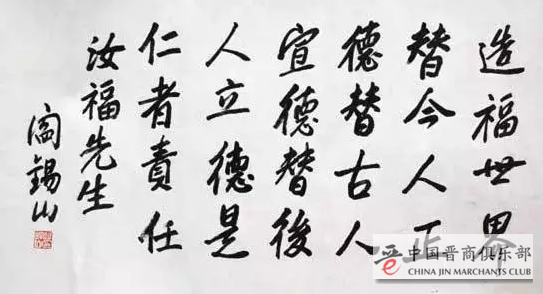 造福世界
替今人正
德替古人
宣德替後
人立德是
仁者責任
汝福先生
閻錫山
中国晋商俱乐部
CHINA JIN MARCHANTS CLUB